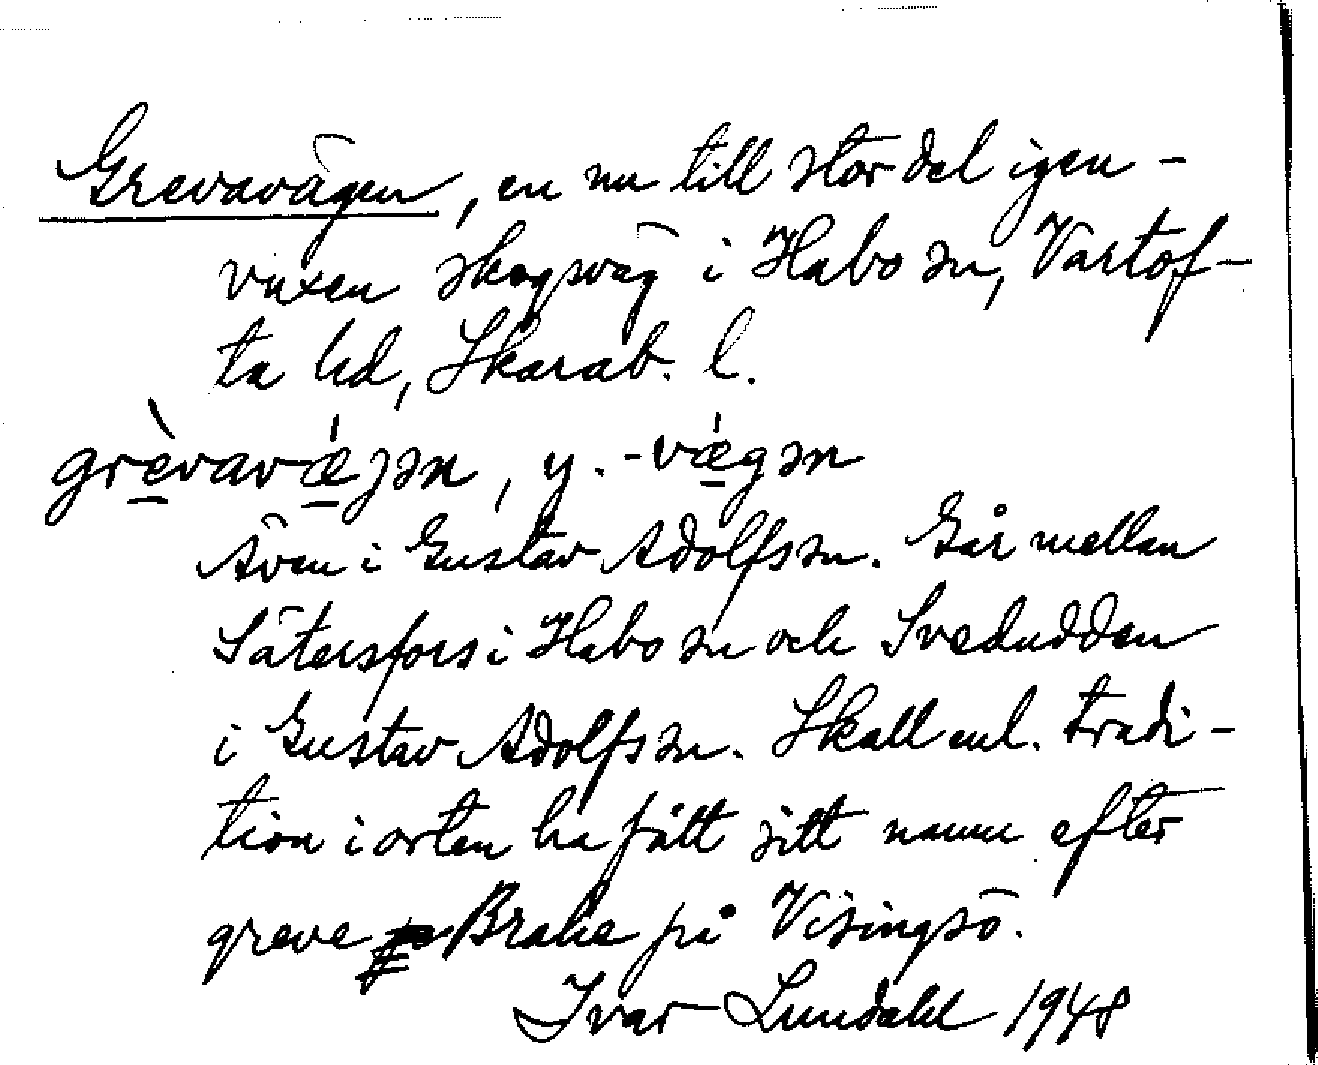 Grevavägen, en nu till stor del igen-
vuxen skogsväg i Habo sn, Vartof-
ta hd, Skarab. l.
grèvavǽjən, y. -vǽgən
Även i Gustav Adolfs sn. Går mellan
Sätersfors i Habo sn och Svedudden
i Gustav Adolfs sn. Skall enl. tradi-
tion i orten ha fått sitt namn efter
greve Brahe på Visingsö.
Ivar Lundahl 1948